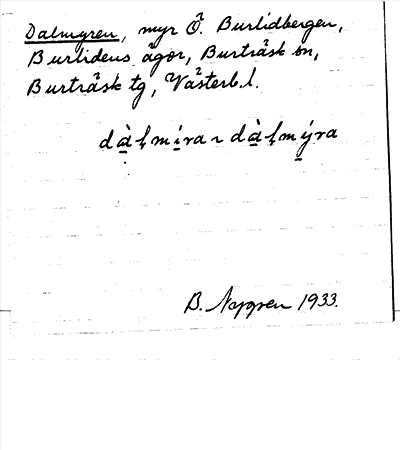 Dalmyren, myr Ö. Burlidbergen,
Burlidens ägor, Burträsk sn,
Burträsk tg, Västerb.l.
dà̱l̥mi̱ra ~ dà̱l̥mý̱ra
B. 1933.